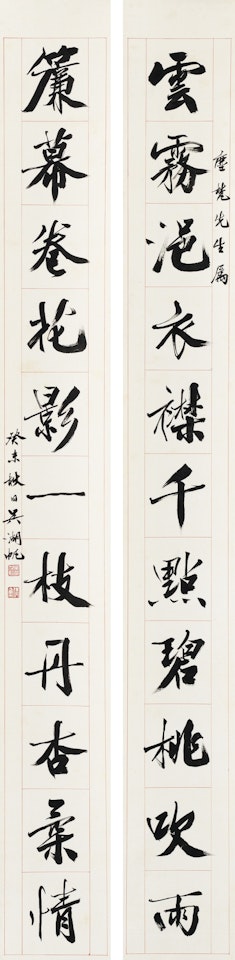 先生屬
雲霧浥衣襟千點碧桃吹雨
簾幕卷花影一枝丹杏情
癸未秋日吳湖帆